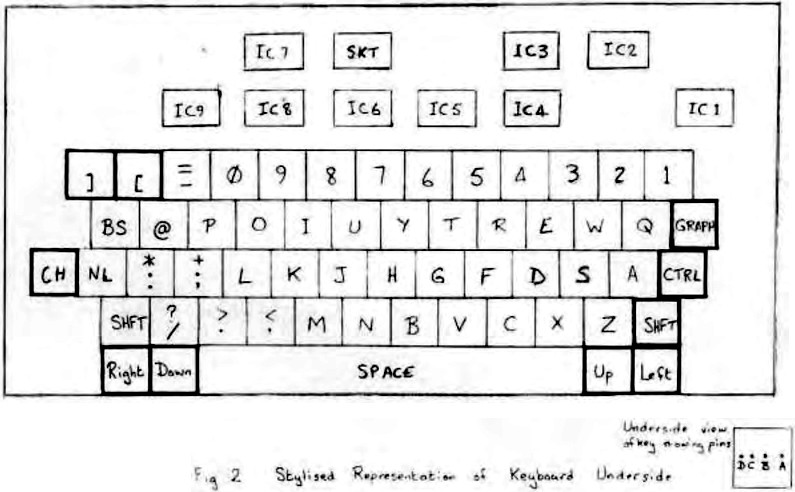 IC7 SKT IC3 IC2
IC9 IC8 IC6 IC5 IC4 IC1
] [ = - Ø 9 8 7 6 5 4 3 2 1
BS @ P O I U Y T R E W Q GRAPH
CH NL * : + ; L K J H G F D S A CTRL
SHFT ? / > . < , M N B V C X Z SHFT
Right Down SPACE Up Left
Underside view
of key showing pins
D C B A
Fig 2 Stylised Representation of Keyboard Underside